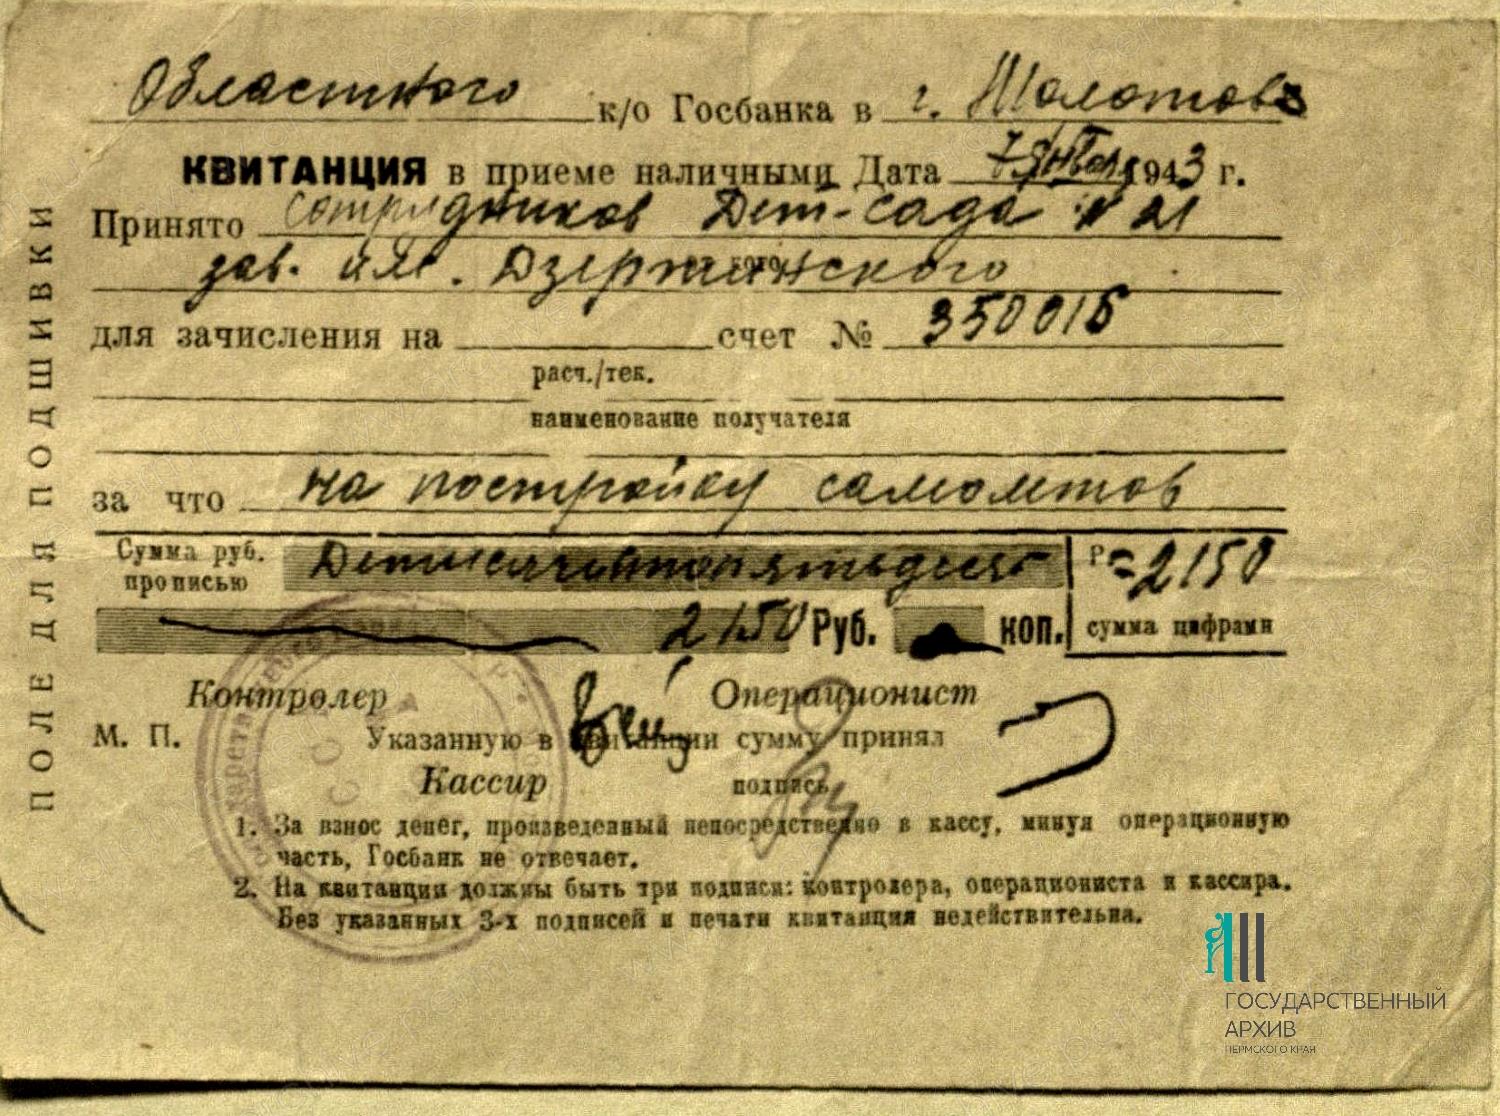 Областного к/о Госбанка в г. Молотов
КВИТАНЦИЯ в приеме наличными Дата 7 января 1943 г.
Принято сотрудников Дет-сада № 21
от кого
зав. им. Дзержинского
для зачисления на счет № 350016
расч./тек.
наименование получателя
за что на постройку самолетов
Сумма руб. прописью Р= 2150
2150 Руб. коп. сумма цифрами
Контролер Операционист
М. П. Указанную в квитанции сумму принял
Кассир подпись
1. За взнос денег, произведенный непосредственно в кассу, минуя операционную
часть, Госбанк не отвечает.
2. На квитанции должны быть три подписи: контролера, операциониста и кассира.
Без указанных 3-х подписей и печати квитанция недействительна.
ПОЛЕ ДЛЯ ПОДШИВКИ
ГОСУДАРСТВЕННЫЙ
АРХИВ
ПЕРМСКОГО КРАЯ